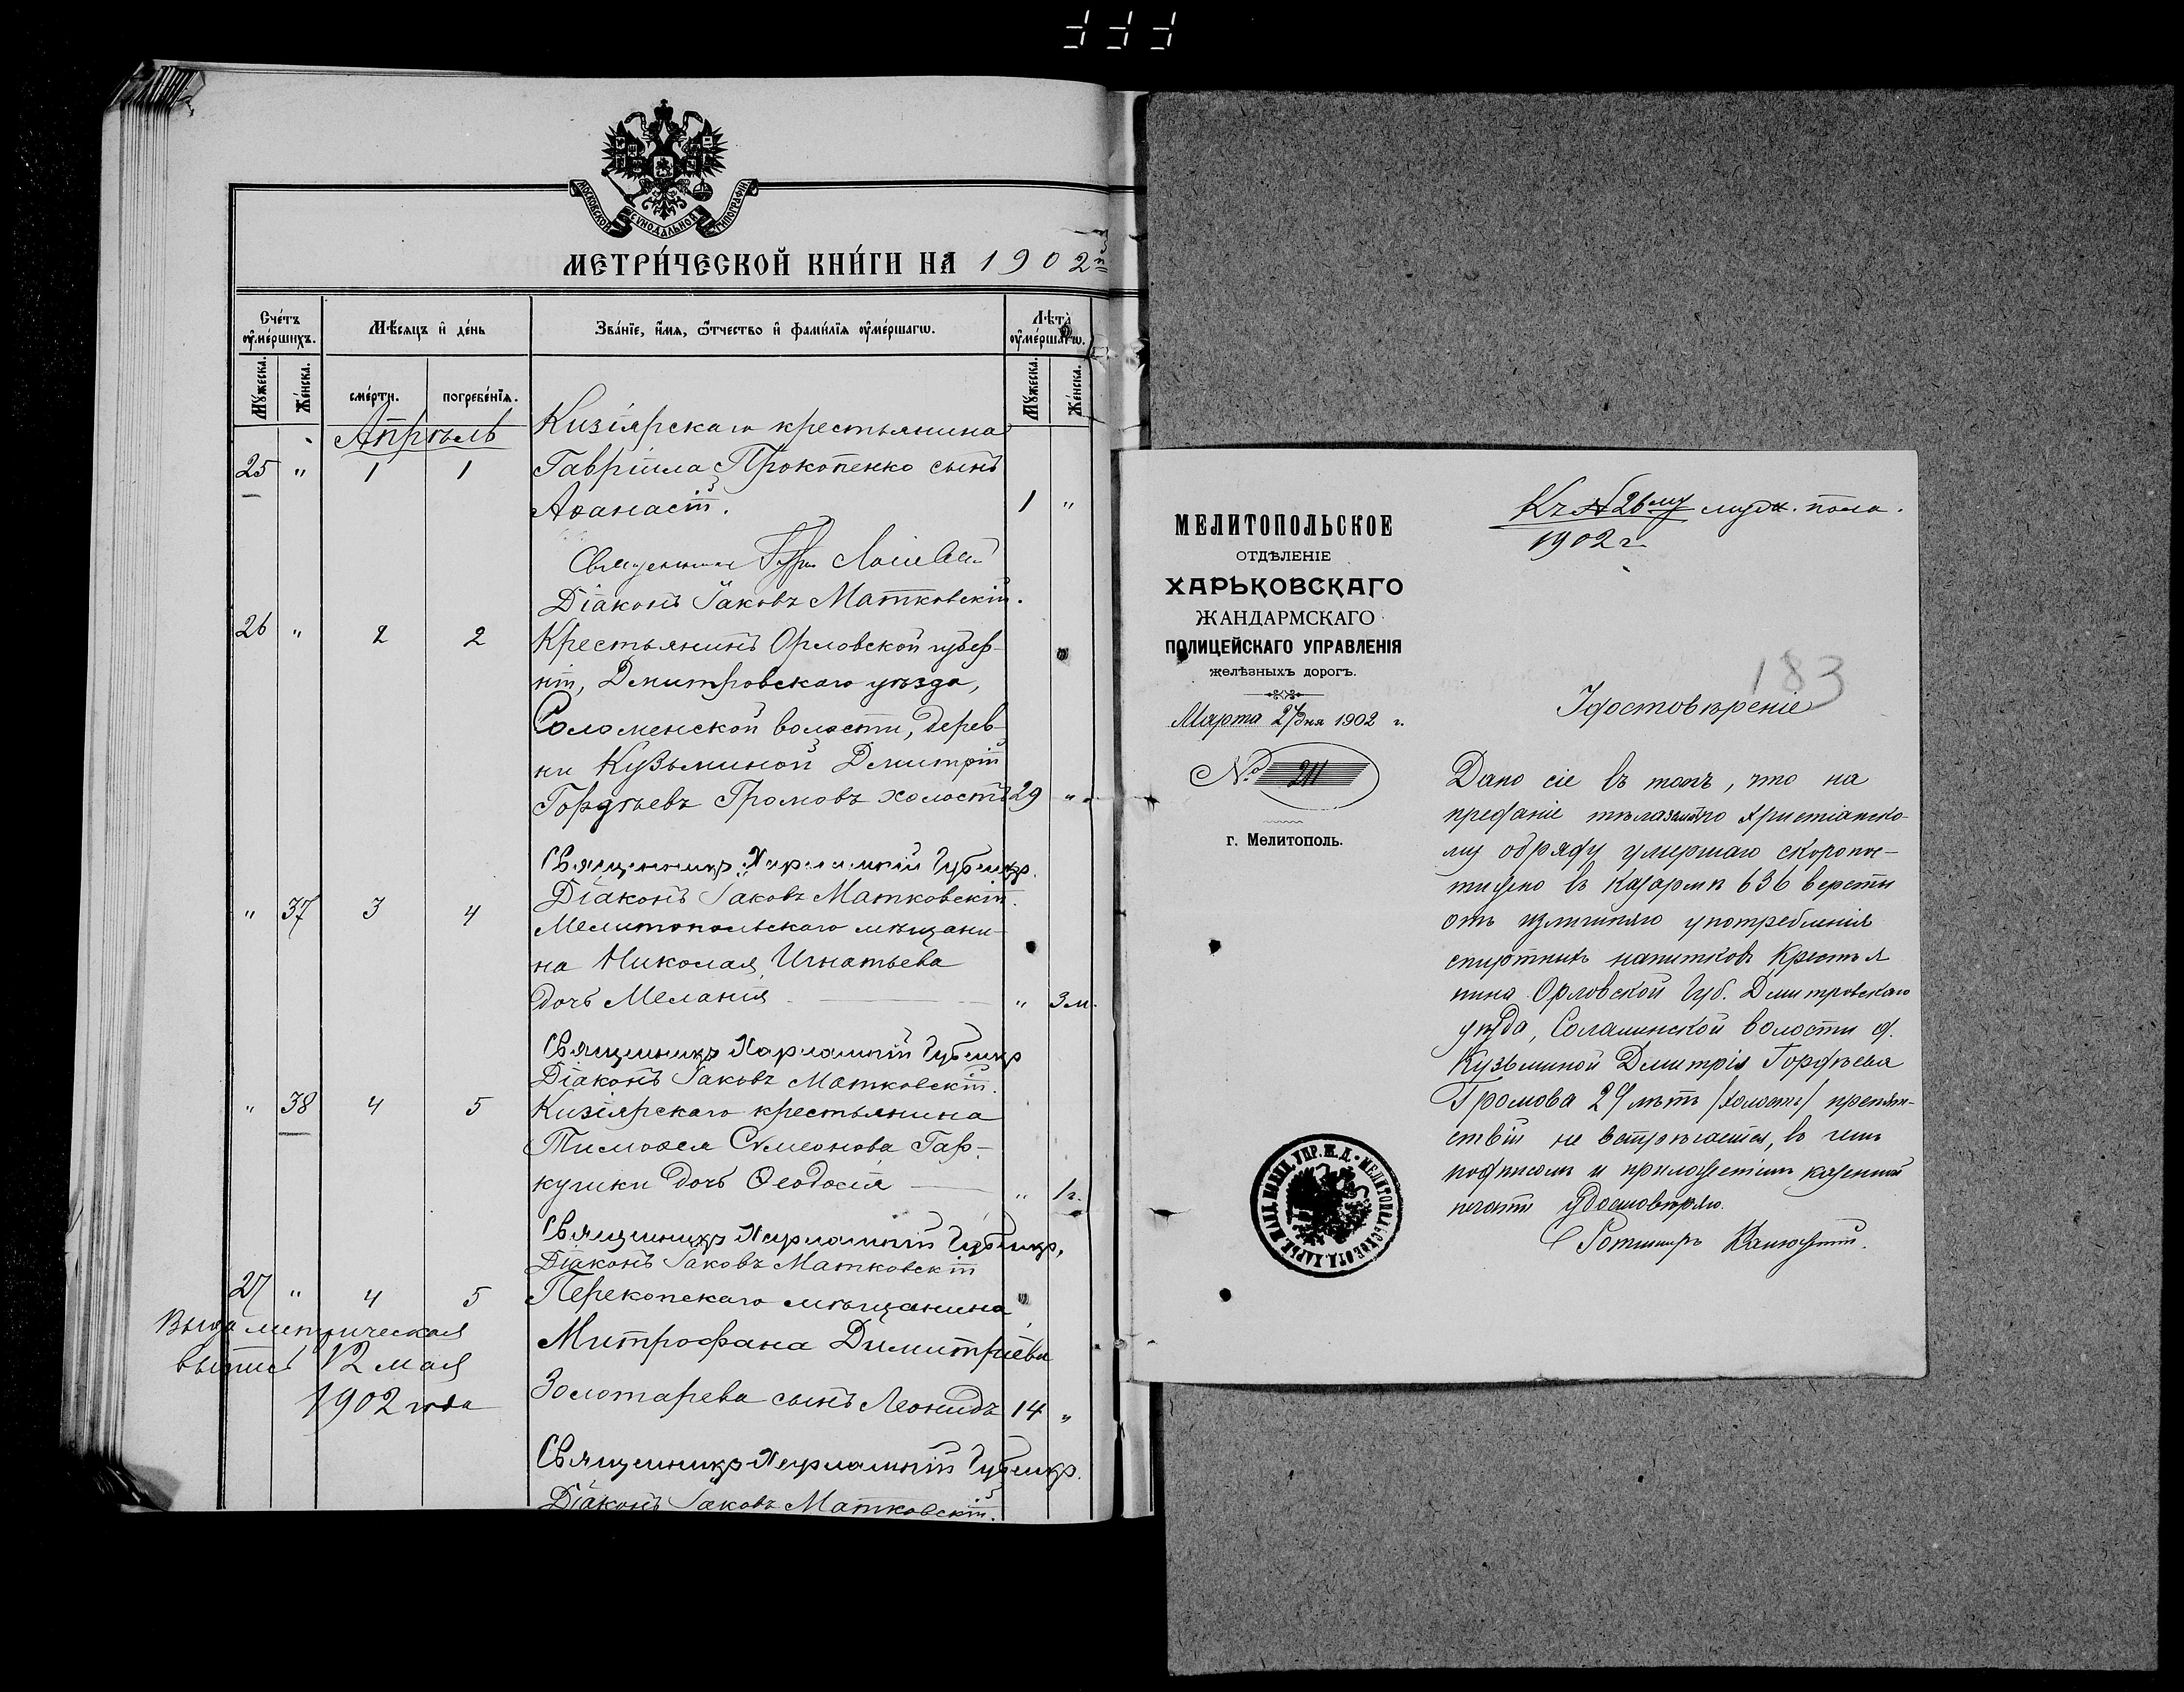 МОСКОВСКОЙ СѴНОДАЛЬНОЙ ТИПОГРАФІИ
МЕТРИ́ЧЕСКОЙ КНИ́ГИ НА 1902й
Сче́тъ оу҆ме́ршихъ.
Мѣ́сяцъ и҆ де́нь
Зва́нїе, и҆́мя, ѻ҆́тчество и҆ фами́лїя оу҆ме́ршагѡ.
Лѣ́та оу҆ме́ршагѡ.
Му́жеска.
Же́нска.
сме́рти.
погребе́нїя.
Му́жеска.
Же́нска.
Апрѣль
Кизіярскаго крестьянина
25 " 1 1 Гавріила Прокопенко сынъ
Аѳанасій. 1 "
Священникъ
Діаконъ Іаковъ Матковскій.
26 " 2 2 Крестьянинъ Орловской губер-
ніи, Дмитровскаго уѣзда,
Соломенской волости, дерев-
ни Кузьминой Дмитрій
Гордѣевъ Громовъ холостъ 29 "
Священникъ Харлампій Губскій.
Діаконъ Іаковъ Матковскій.
" 37 3 4
Мелитопольскаго мѣщани-
на Николая Игнатьева
дочь Меланія " 3 м.
Священникъ Харлампій
Діаконъ Іаковъ Матковскій.
" 38 4 5 Кизіярскаго крестьянина
Тимоѳея Сѵмеонова Гар-
кушки дочь Ѳеодосія " 1 г.
Священникъ Харлампій
Діаконъ Іаковъ Матковскій
27 " 4 5 Перекопскаго мѣщанина
Митрофана Димитріева
Золотарева сынъ Леонидъ 14 "
метрическая
выпись 12 мая
1902 года
Священникъ Харлампій
Діаконъ Іаковъ Матковскій.
Къ № 26му муж. пола.
1902 г.
МЕЛИТОПОЛЬСКОЕ
ОТДѢЛЕНІЕ
ХАРЬКОВСКАГО
ЖАНДАРМСКАГО
ПОЛИЦЕЙСКАГО УПРАВЛЕНІЯ
желѣзныхъ дорогъ.
Марта 27 дня 1902 г.
№ 211
г. Мелитополь.
183
Удостовѣреніе
Дано сіе въ томъ, что на
преданіе тѣла землѣ по христіанско-
му обряду умершаго скоропос-
тижно въ казармѣ 636 версты
отъ излишняго употребленія
спиртныхъ напитковъ крестья
нина Орловской Губ. Дмитровскаго
уѣзда, Соламинской волости д.
Кузьминой Дмитрія Гордѣева
Громова 29 лѣтъ /холостъ/ препят-
ствій не встрѣчается, въ чемъ
подписомъ и приложеніемъ казенной
печати удостовѣряю.
Ротмистръ